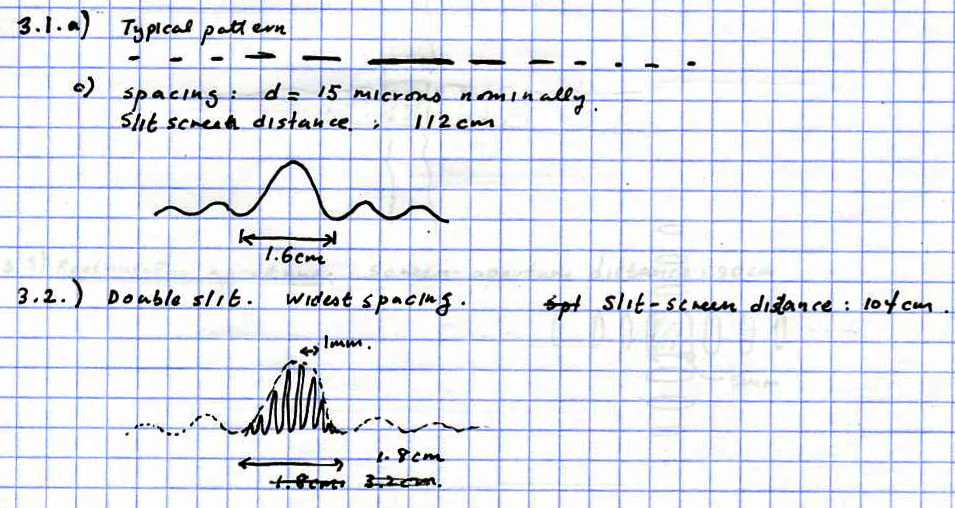 3.1.a) Typical pattern
c) spacing: d = 15 microns nominally.
Slit screen distance: 112cm
1.6cm
3.2.) Double slit. widest spacing. spt slit-screen distance: 104cm.
1mm.
1.8cm
1.8cm 3.2cm.